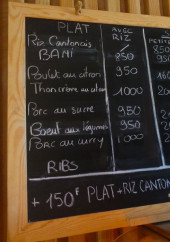 PLAT AVEC RIZ
Riz Cantonais
BAMI 850 950
Poulet au citron 950
Thon crème au citron 1000
Porc au sucre 950
Boeuf aux légumes 950
Porc au curry 1000
RIBS
+ 150F PLAT + RIZ CANTON